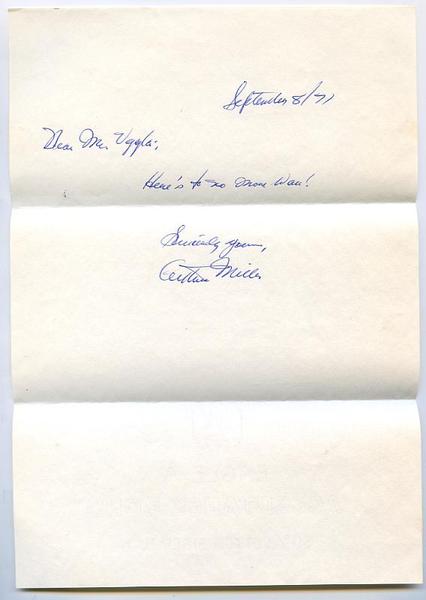 September 8/71
Dear Mr. Uggla,
Here's to no more war!
Sincerely yours,
Arthur Miller